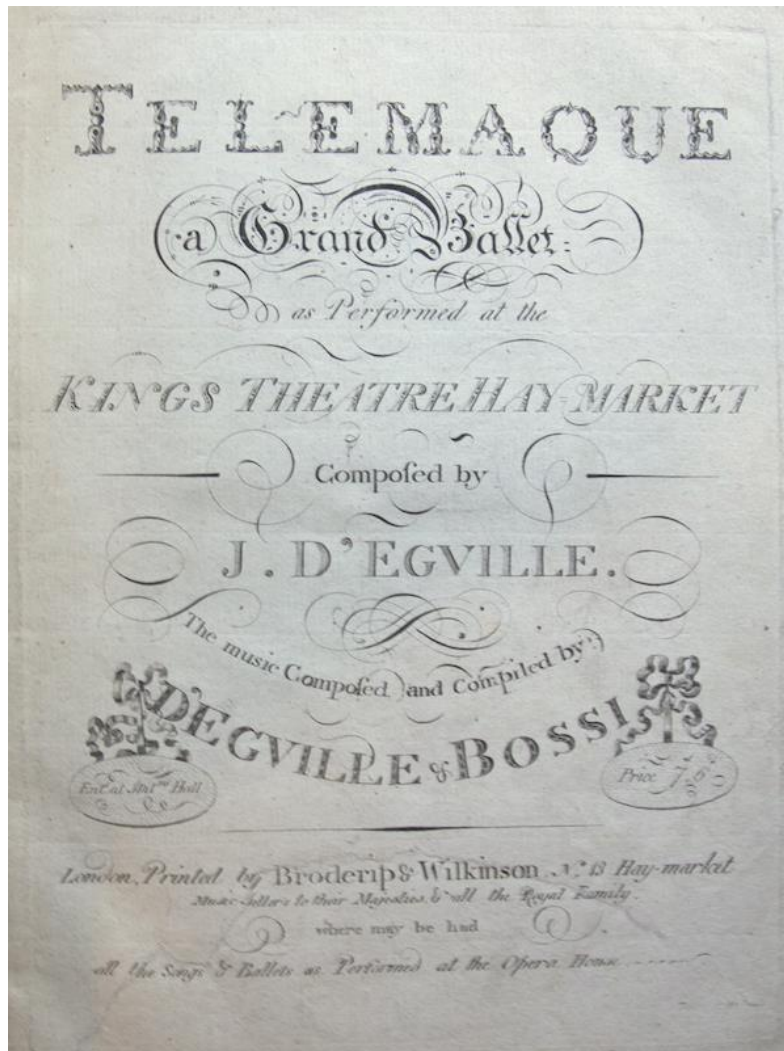 TELEMAQUE
a Grand Ballet
as Performed at the
KINGS THEATRE HAY-MARKET
Compoſed by
J. D'EGVILLE.
The music Compoſed and Compiled by
D'EGVILLE & BOSSI
Ent. at Stat.rs Hall
Price 7.6
London, Printed by Broderip & Wilkinson No. 13 Hay-market
Music-ſellers to their Majesties, & all the Royal Family.
where may be had
all the Songs & Ballets as Performed at the Opera House